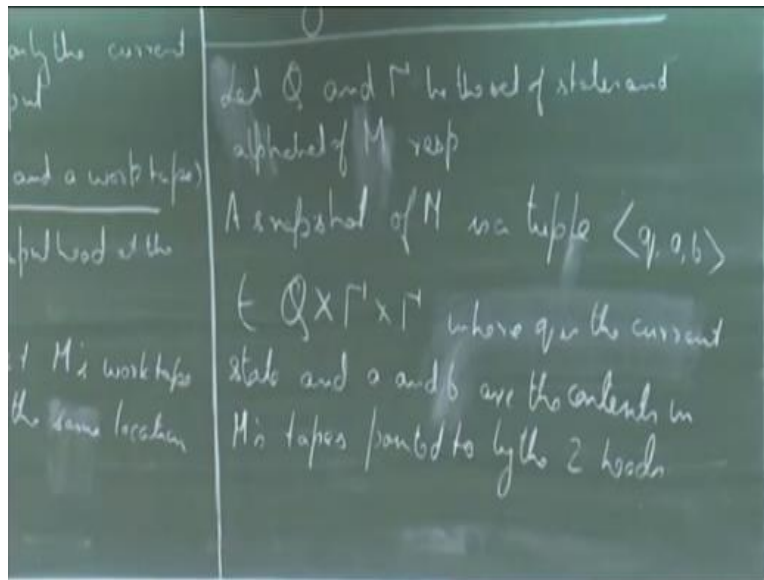 only the current
put
and a work tape)
input head at the
M's work tape
the same location
Let Q and Γ be the set of states and
alphabet of M resp
A snapshot of M is a tuple <q, a, b>
∈ Q×Γ×Γ where q is the current
state and a and b are the contents in
M's tapes pointed to by the 2 heads